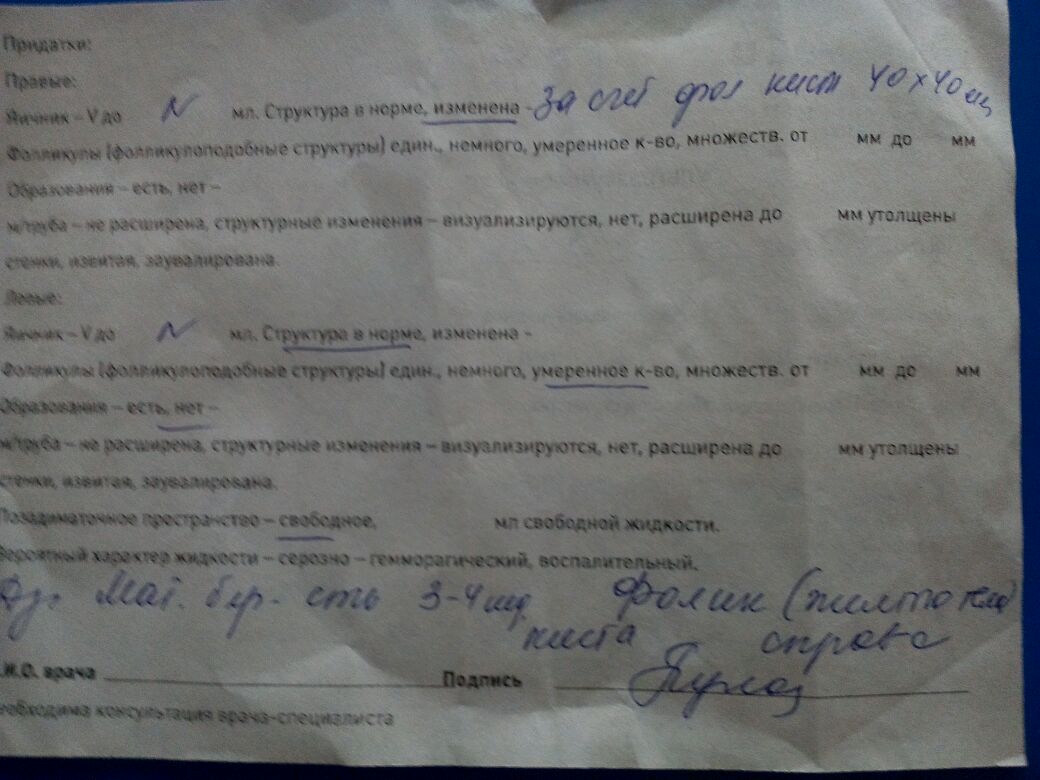 Придатки:
Правые:
Яичник – V до N мл. Структура в норме, изменена - за счет фол кист 40х40мм
Фолликулы (фолликулоподобные структуры) един., немного, умеренное к-во, множеств. от мм до мм
Образования – есть, нет –
м/труба – не расширена, структурные изменения – визуализируются, нет, расширена до мм утолщены
стенки, извитая, заувалирована.
Левые:
Яичник – V до N мл. Структура в норме, изменена –
Фолликулы (фолликулоподобные структуры) един., немного, умеренное к-во, множеств. от мм до мм
Образования – есть, нет –
м/труба – не расширена, структурные изменения – визуализируются, нет, расширена до мм утолщены
стенки, извитая, заувалирована.
Позадиматочное пространство – свободное, мл свободной жидкости.
Вероятный характер жидкости – серозно – гемморагический, воспалительный.
Мат. бер-сть 3-4 нед Фолик (желто тела)
киста справа
.И.О. врача Подпись
необходима консультация врача-специалиста